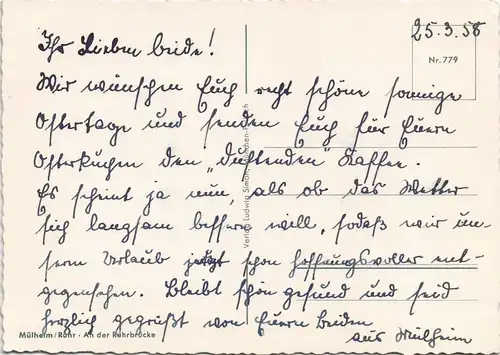 25.3.58
Nr. 779
Ihr Lieben beide!
Wir wünschen Euch recht schöne sonnige
Ostertage und senden Euch für Euern
Osterkuchen den „duftenden" Kaffee.
Es scheint ja nun, als ob das Wetter
sich langsam bessern will, sodaß wir un-
serm Urlaub jetzt schon hoffnungsvoller ent-
gegensehen. Bleibt schön gesund und seid
herzlich gegrüßt von Euern Beiden
aus Mülheim
Mülheim/Ruhr · An der Ruhrbrücke
Verlag Ludwig Simon, München-